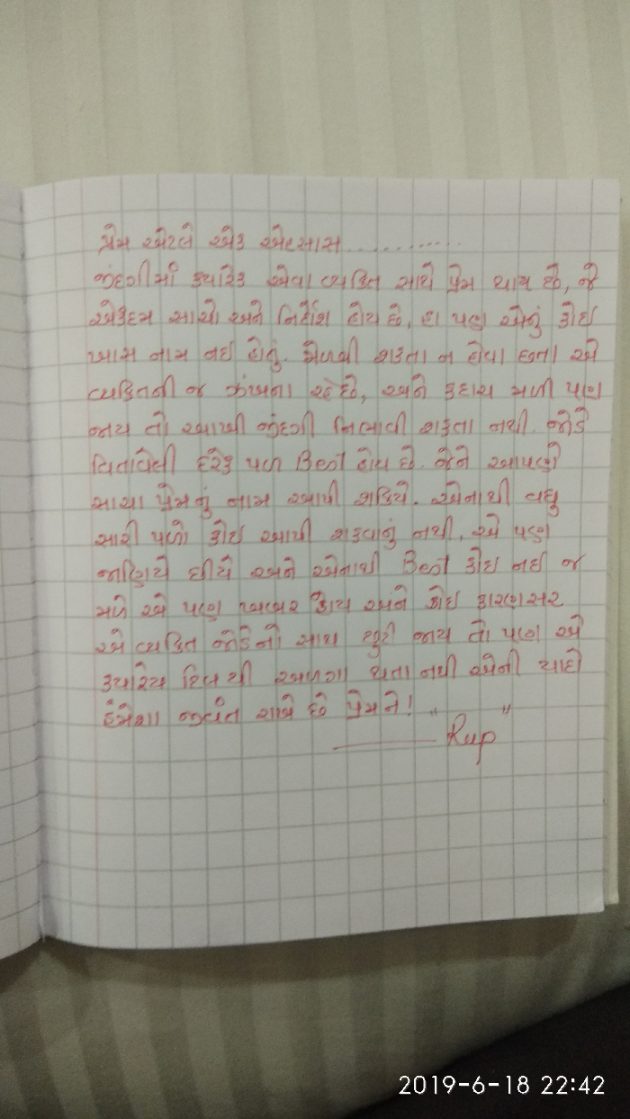 પ્રેમ એટલે એક એહસાસ............
જીંદગીમાં ક્યારેક એવા વ્યક્તિ સાથે પ્રેમ થાય છે, જે
એકદમ સાચો અને નિર્દોશ હોય છે, હા પણ એનું કોઇ
ખાસ નામ નઇ હોતું. મેળવી શકતા ન હોવા છતા એ
વ્યક્તિની જ ઝંખના રહે છે, અને કદાચ મળી પણ
જાય તો આખી જીંદગી નિભાવી શકતા નથી. જોડે
વિતાવેલી દરેક પળ Best હોય છે. જેને આપણે
સાચા પ્રેમનું નામ આપી શકિયે. એનાથી વધુ
સારી પળો કોઇ આપી શકવાનું નથી, એ પણ
જાણિયે છીયે અને એનાથી Best કોઇ નઇ જ
મળે એ પણ ખબર હોય અને કોઇ કારણસર
એ વ્યક્તિ જોડેનો સાથ છુટી જાય તો પણ એ
ક્યારેય દિલ થી અળગા થતા નથી એની યાદો
હંમેશા જીવંત રાખે છે પ્રેમને!
"Rup"
2019-6-18 22:42